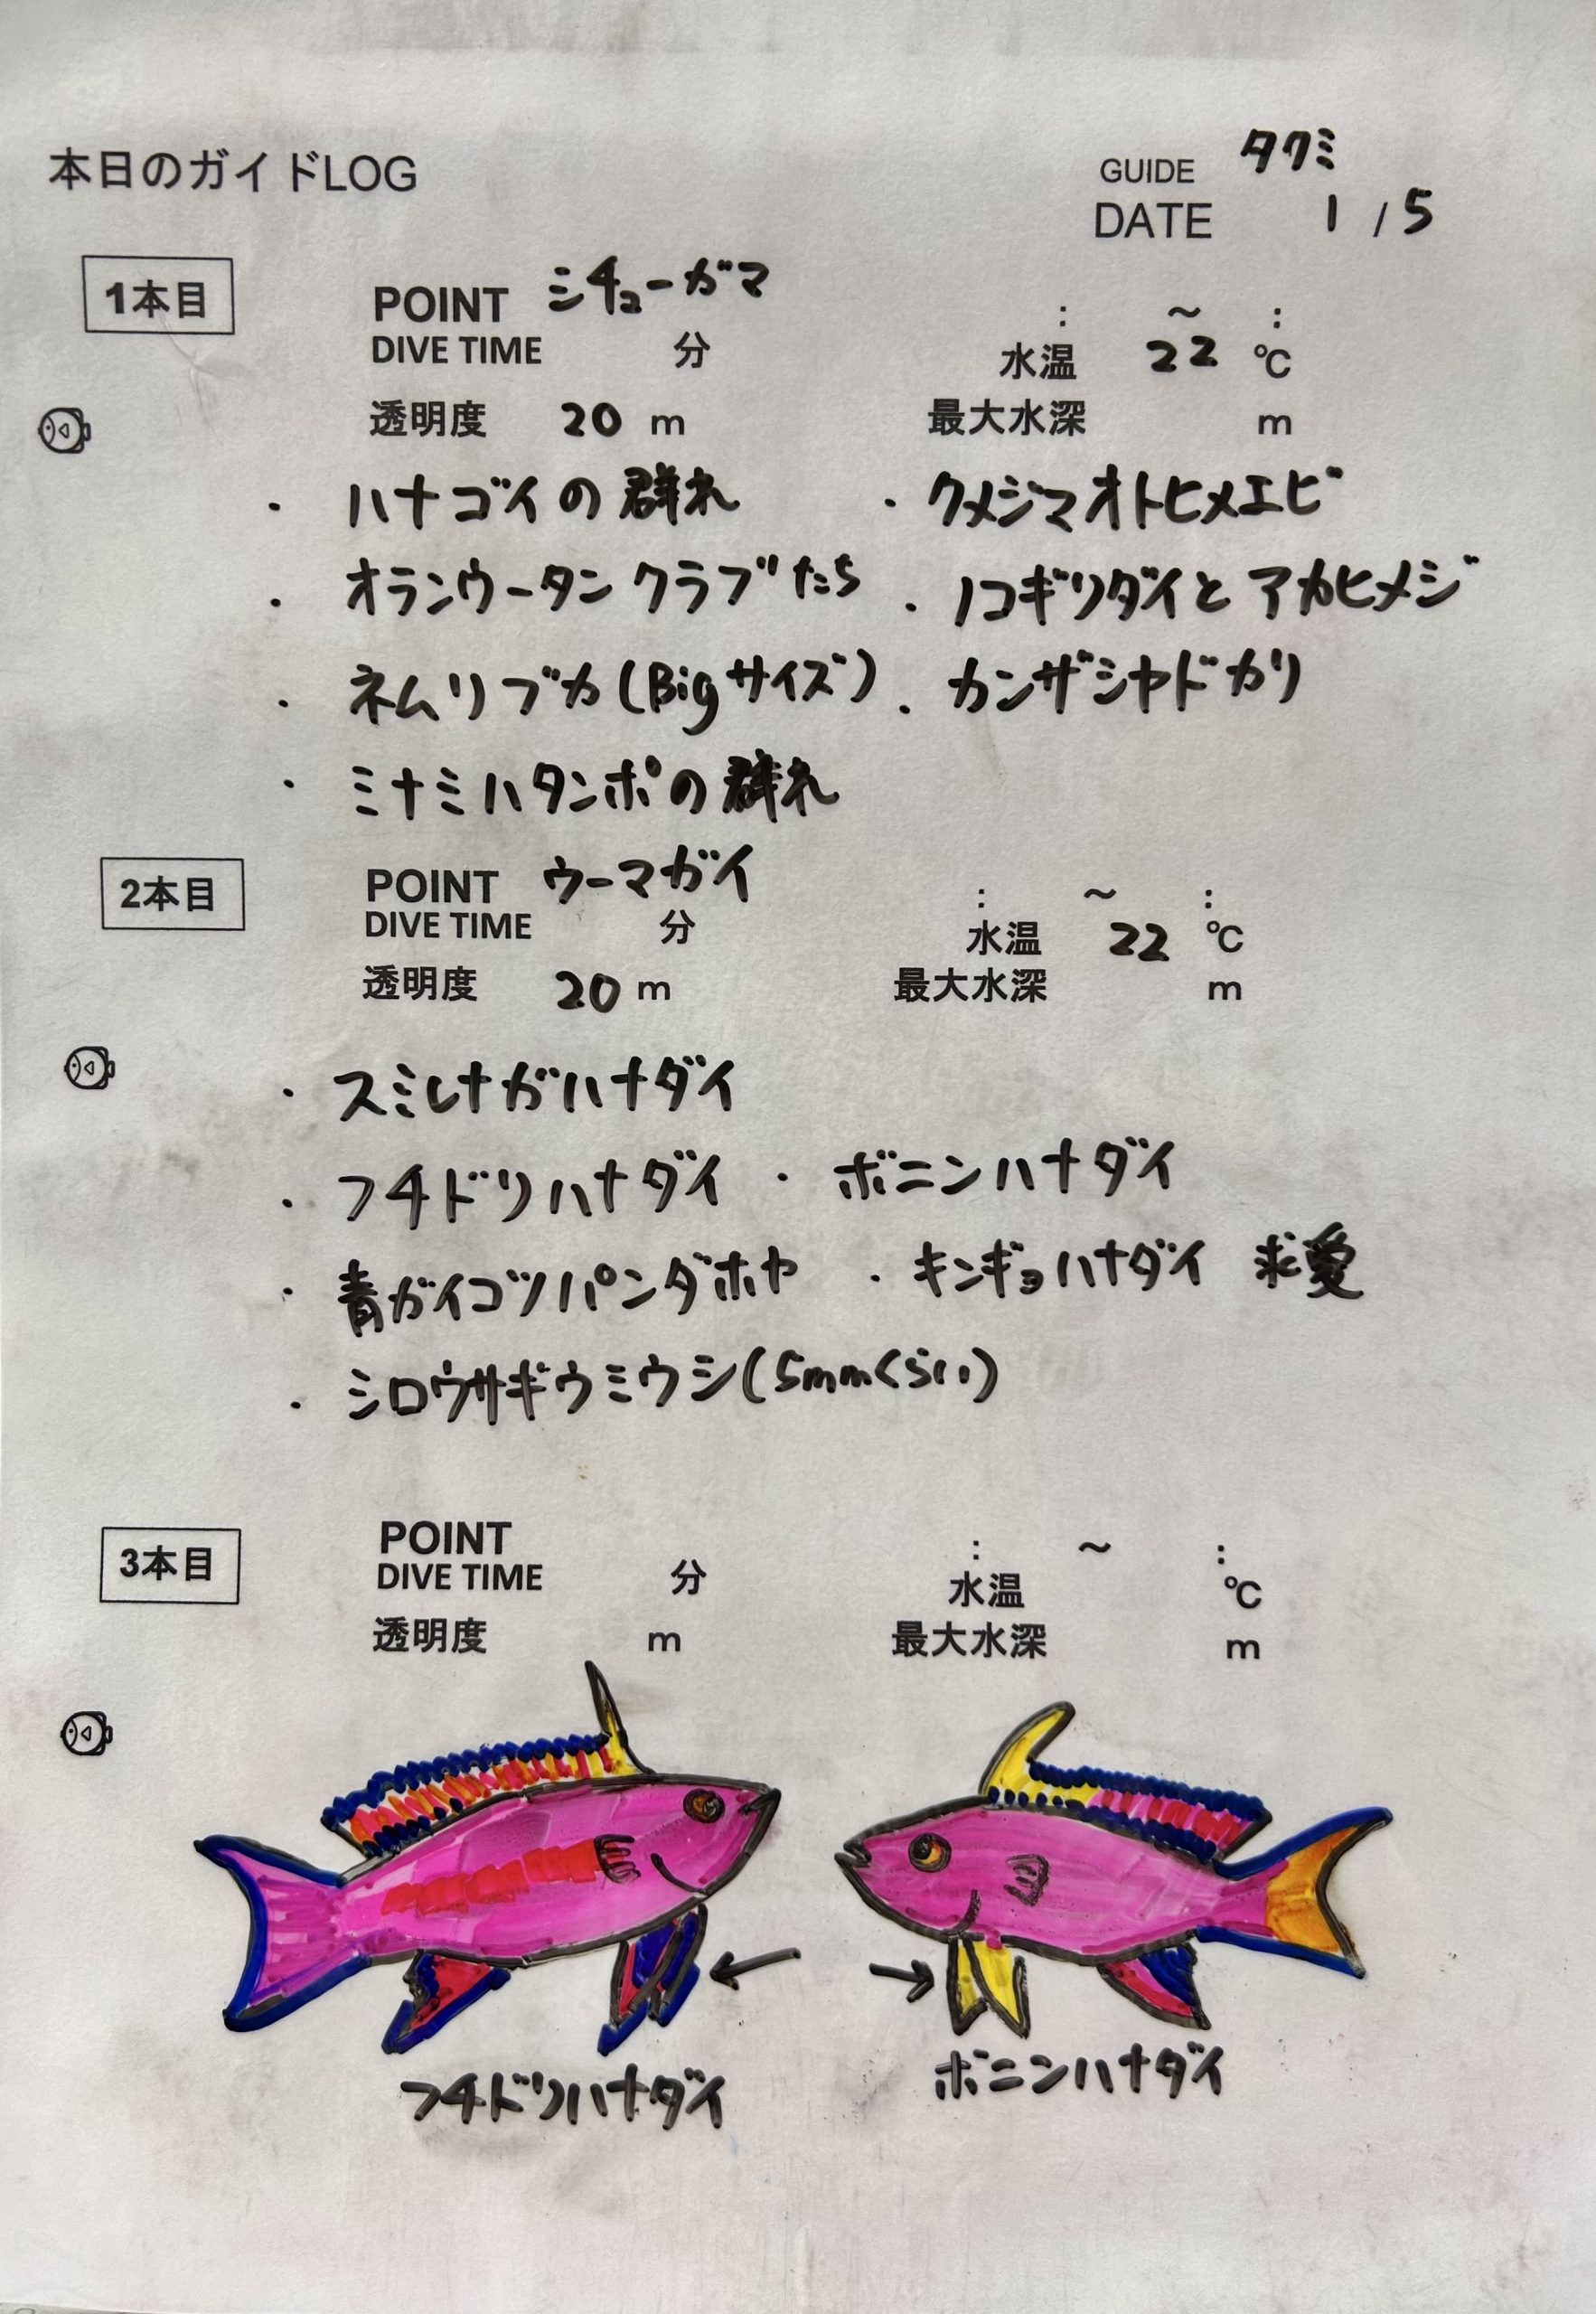 本日のガイドLOG
GUIDE タクミ
DATE 1 / 5
1本目
POINT シチューガマ
: ～ :
DIVE TIME 分
水温 22 ℃
透明度 20 m
最大水深 m
・ハナゴイの群れ ・クメジマオトヒメエビ
・オランウータンクラブたち ・ノコギリダイとアカヒメジ
・ネムリブカ(Bigサイズ) ・カンザシヤドカリ
・ミナミハタンポの群れ
2本目
POINT ウーマガイ
: ～ :
DIVE TIME 分
水温 22 ℃
透明度 20 m
最大水深 m
・スミレナガハナダイ
・フチドリハナダイ ・ボニンハナダイ
・青ガイコツパンダホヤ ・キンギョハナダイ 求愛
・シロウサギウミウシ(5mmくらい)
3本目
POINT
: ～ :
DIVE TIME 分
水温 ℃
透明度 m
最大水深 m
フチドリハナダイ
ボニンハナダイ